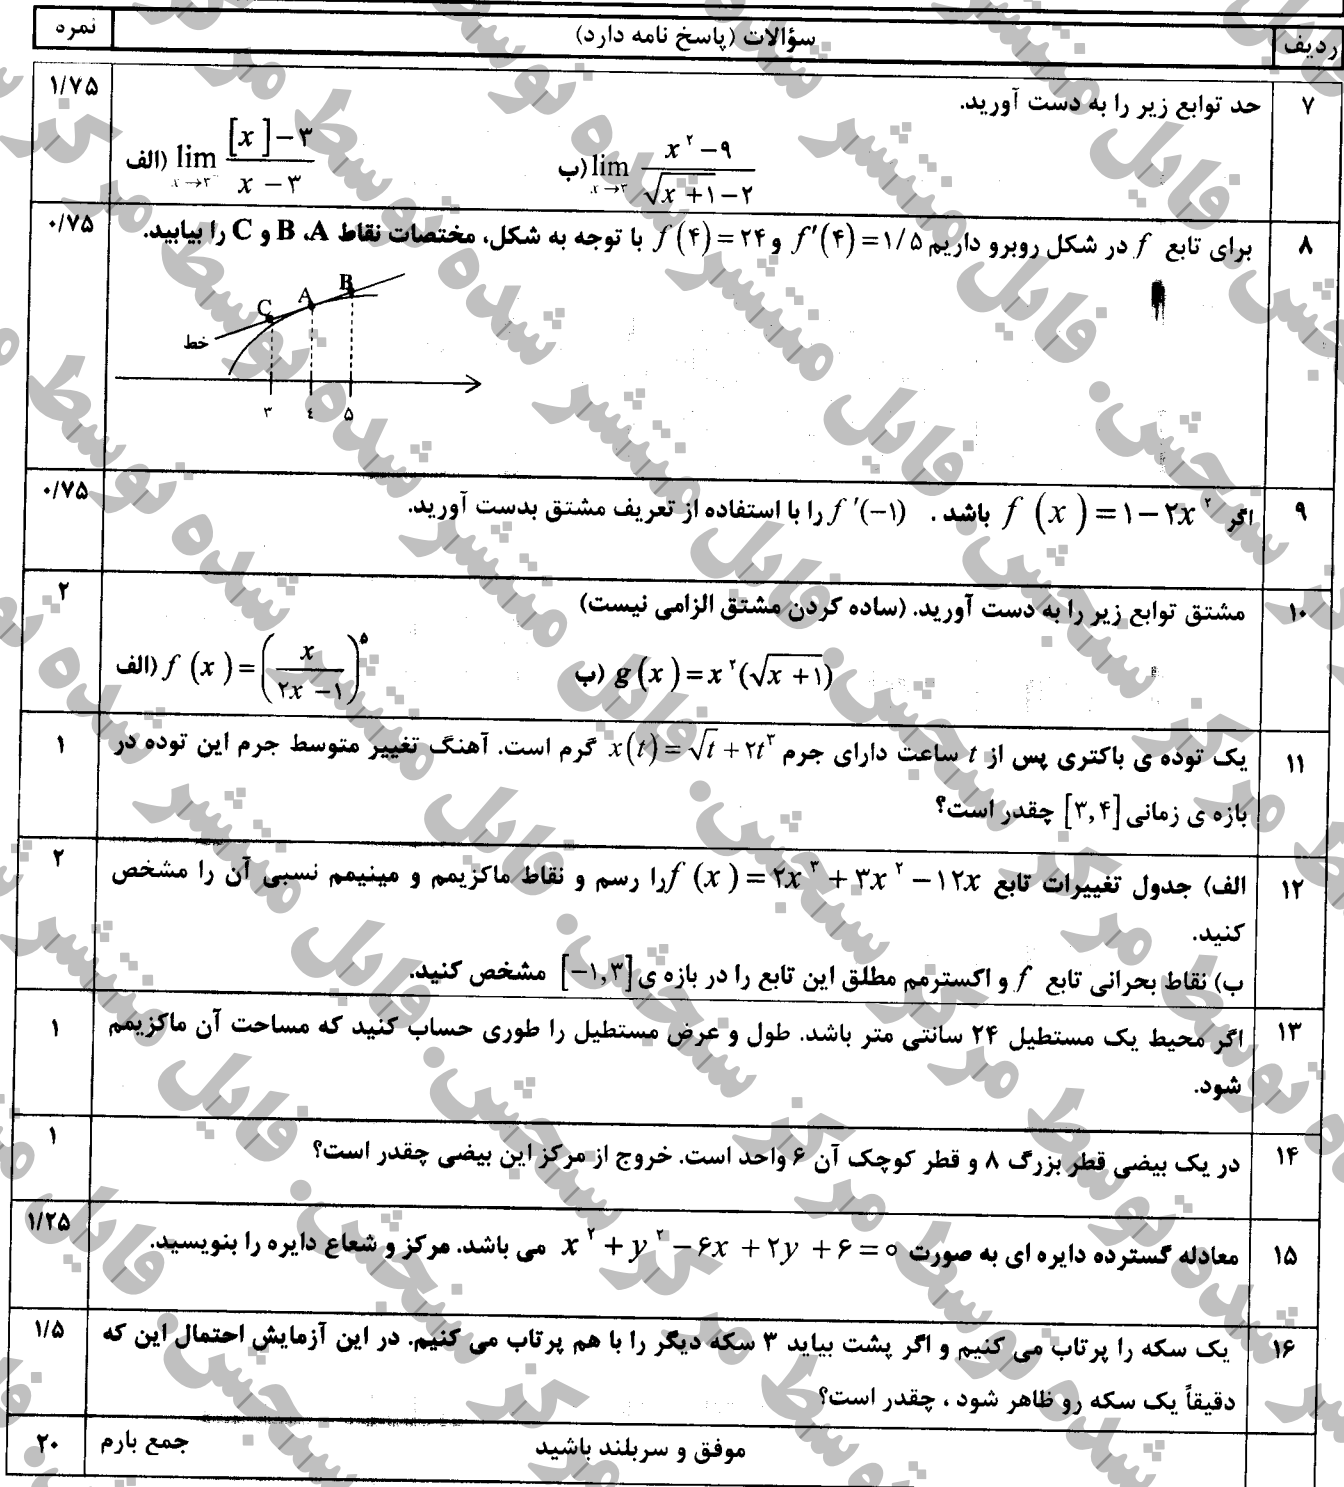 ردیف سؤالات (پاسخ نامه دارد) نمره
۷ حد توابع زیر را به دست آورید. ۱/۷۵
الف) lim x→۳⁻ ([x]−۳)/(x−۳) ب) lim x→۳ (x^۲−۹)/(√(x+۱)−۲)
۸ برای تابع f در شکل روبرو داریم f′(۴)=۱/۵ و f(۴)=۲۴ با توجه به شکل، مختصات نقاط A، B و C را بیابید. ۰/۷۵
C A B
خط
۳ ٤ ۵
۹ اگر f(x)=۱−۲x^۲ باشد . f′(−۱) را با استفاده از تعریف مشتق بدست آورید. ۰/۷۵
۱۰ مشتق توابع زیر را به دست آورید. (ساده کردن مشتق الزامی نیست) ۲
الف) f(x)=(x/(۲x−۱))^۵ ب) g(x)=x^۲(√(x+۱))
۱۱ یک توده ی باکتری پس از t ساعت دارای جرم x(t)=√t+۲t^۳ گرم است. آهنگ تغییر متوسط جرم این توده در ۱
بازه ی زمانی [۳,۴] چقدر است؟
۱۲ الف) جدول تغییرات تابع f(x)=۲x^۳+۳x^۲−۱۲x را رسم و نقاط ماکزیمم و مینیمم نسبی آن را مشخص ۲
کنید.
ب) نقاط بحرانی تابع f و اکسترمم مطلق این تابع را در بازه ی [−۱,۳] مشخص کنید.
۱۳ اگر محیط یک مستطیل ۲۴ سانتی متر باشد. طول و عرض مستطیل را طوری حساب کنید که مساحت آن ماکزیمم ۱
شود.
۱۴ در یک بیضی قطر بزرگ ۸ و قطر کوچک آن ۶ واحد است. خروج از مرکز این بیضی چقدر است؟ ۱
۱۵ معادله گسترده دایره ای به صورت x^۲+y^۲−۶x+۲y+۶=۰ می باشد. مرکز و شعاع دایره را بنویسید. ۱/۲۵
۱۶ یک سکه را پرتاب می کنیم و اگر پشت بیاید ۳ سکه دیگر را با هم پرتاب می کنیم. در این آزمایش احتمال این که ۱/۵
دقیقاً یک سکه رو ظاهر شود ، چقدر است؟
موفق و سربلند باشید جمع بارم ۲۰
فایل منتشر شده توسط مرکز سنجش